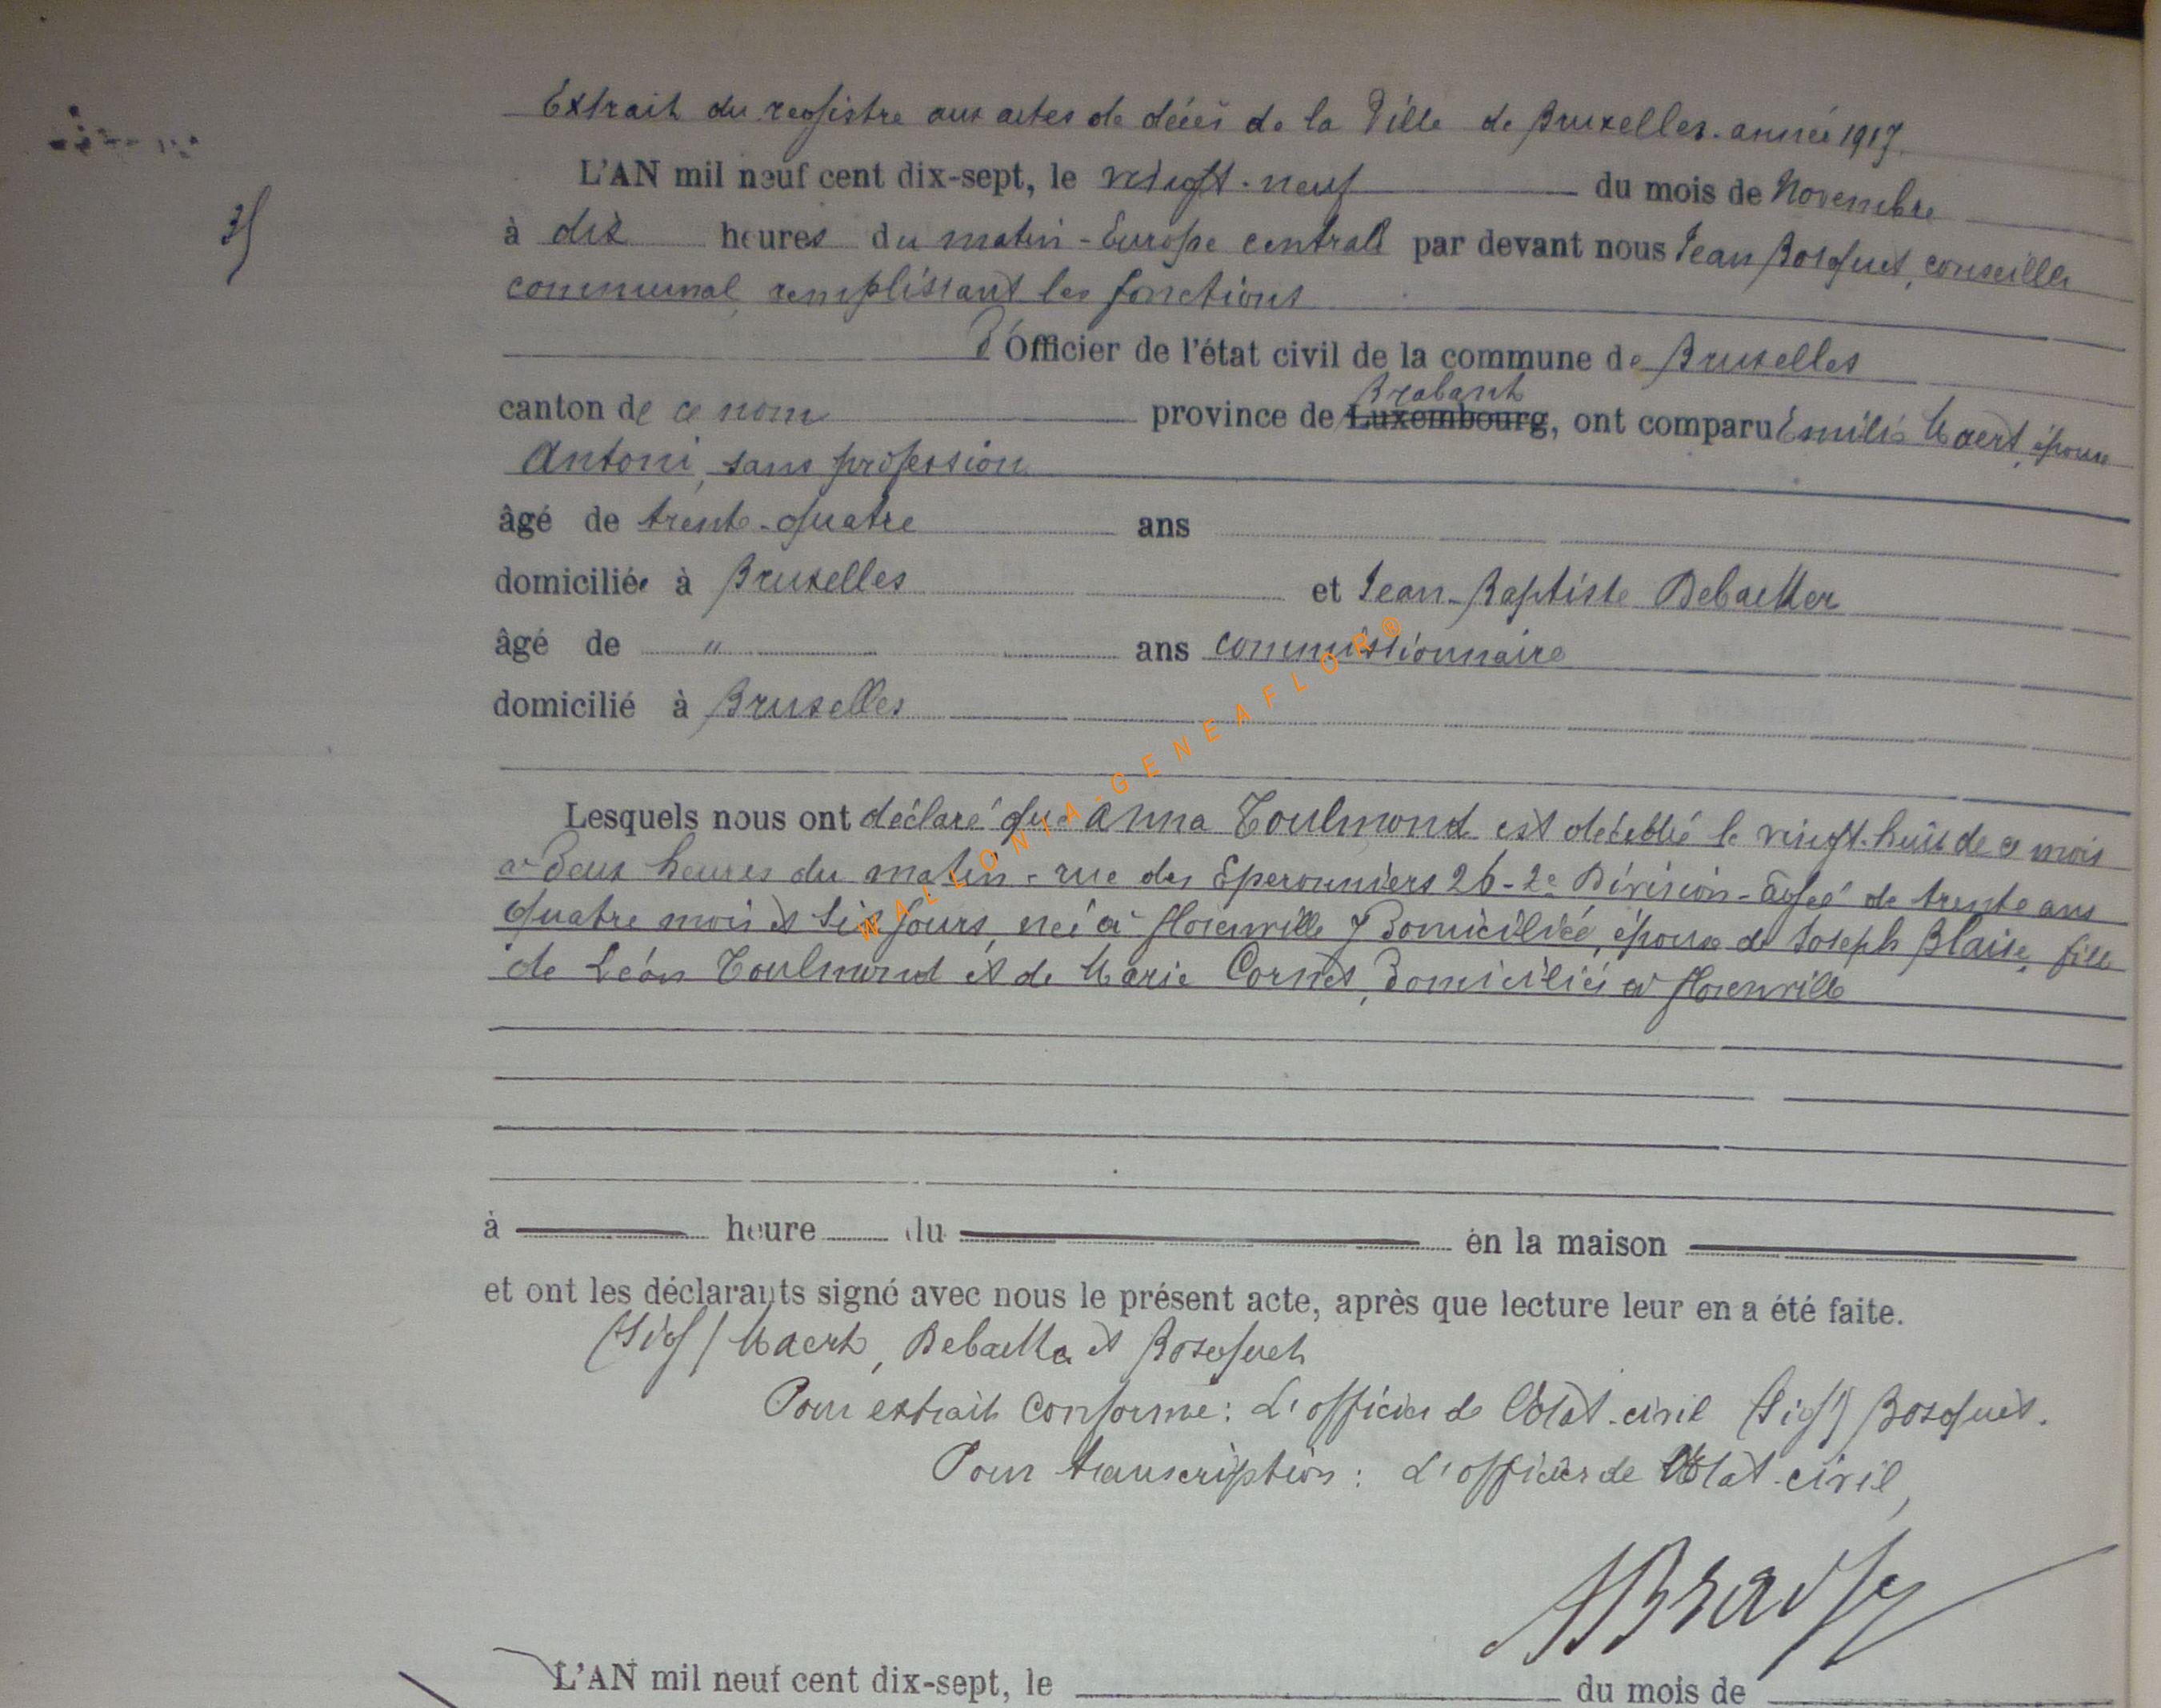 Extrait du registre aux actes de décès de la Ville de Bruxelles. année 1917.
L'AN mil neuf cent dix-sept, le vingt-neuf du mois de Novembre
à dix heures du matin - Europe centrale par devant nous Jean Bosquet, conseiller
communal, remplissant les fonctions
d'Officier de l'état civil de la commune de Bruxelles
Brabant
canton de ce nom province de Luxembourg, ont comparu Emilie Maert, épouse
Antoni, sans profession
âgé de trente-quatre ans
domiciliée à Bruxelles et Jean-Baptiste Debaetker
âgé de " ans commissionnaire
domicilié à Bruxelles
Lesquels nous ont déclaré que Anna Toulmond est décédée le vingt-huit de ce mois
à deux heures du matin - rue des Eperonniers 26 - 2e Division - âgée de trente ans
quatre mois et six jours, née à Florenville y domiciliée, épouse de Joseph Blaise, fille
de Léon Toulmond et de Marie Cornet, domiciliés à Florenville
à heure du en la maison
et ont les déclarants signé avec nous le présent acte, après que lecture leur en a été faite.
(Sig) Maert, Debaetker et Bosquet
Pour extrait conforme: L'officier de l'état-civil (Sig) Bosquet.
Pour transcription: L'officier de l'état-civil,
L'AN mil neuf cent dix-sept, le du mois de
WALLONIA-GENEAFLOR®